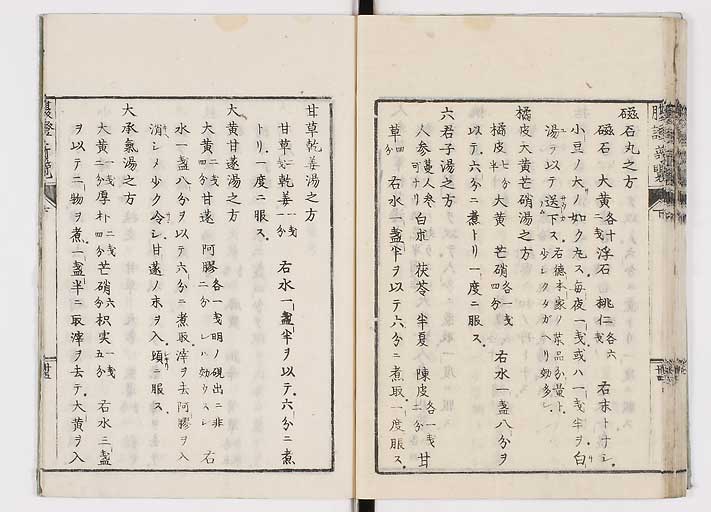 磁石丸之方
磁石 大黄各十二戔 浮石 桃仁各六戔 右末トナシ
小豆ノ大ノ如ク丸ス毎夜一戔或ハ一戔半ヲ白
湯ヲ以テ送下ス
橘皮大黄芒硝湯之方
橘皮七分半 大黄 芒硝各一戔一分 右水一盞八分ヲ
以テ六分ニ煮トリ一度ニ服ス
六君子湯之方
人参蔓人参可ナリ 白朮 茯苓 半夏 陳皮各一戔二分 甘
草四分 右水一盞半ヲ以テ六分ニ煮取一度服ス
甘草乾姜湯之方
甘草二戔 乾姜一戔一分 右水一盞半ヲ以テ六分ニ煮
トリ一度ニ服ス
大黄甘遂湯之方
大黄二戔四分 甘遂 阿膠各一戔二分 右
水一盞八分ヲ以テ六分ニ煮取滓ヲ去阿膠ヲ入
消シメ少ク令シ甘遂ノ末ヲ入頓ニ服ス
大承氣湯之方
大黄一戔二分 厚朴二戔四分 芒硝六分 枳実一戔五分 右水三盞
ヲ以テ二物ヲ煮一盞半ニ取滓ヲ去テ大黄ヲ入